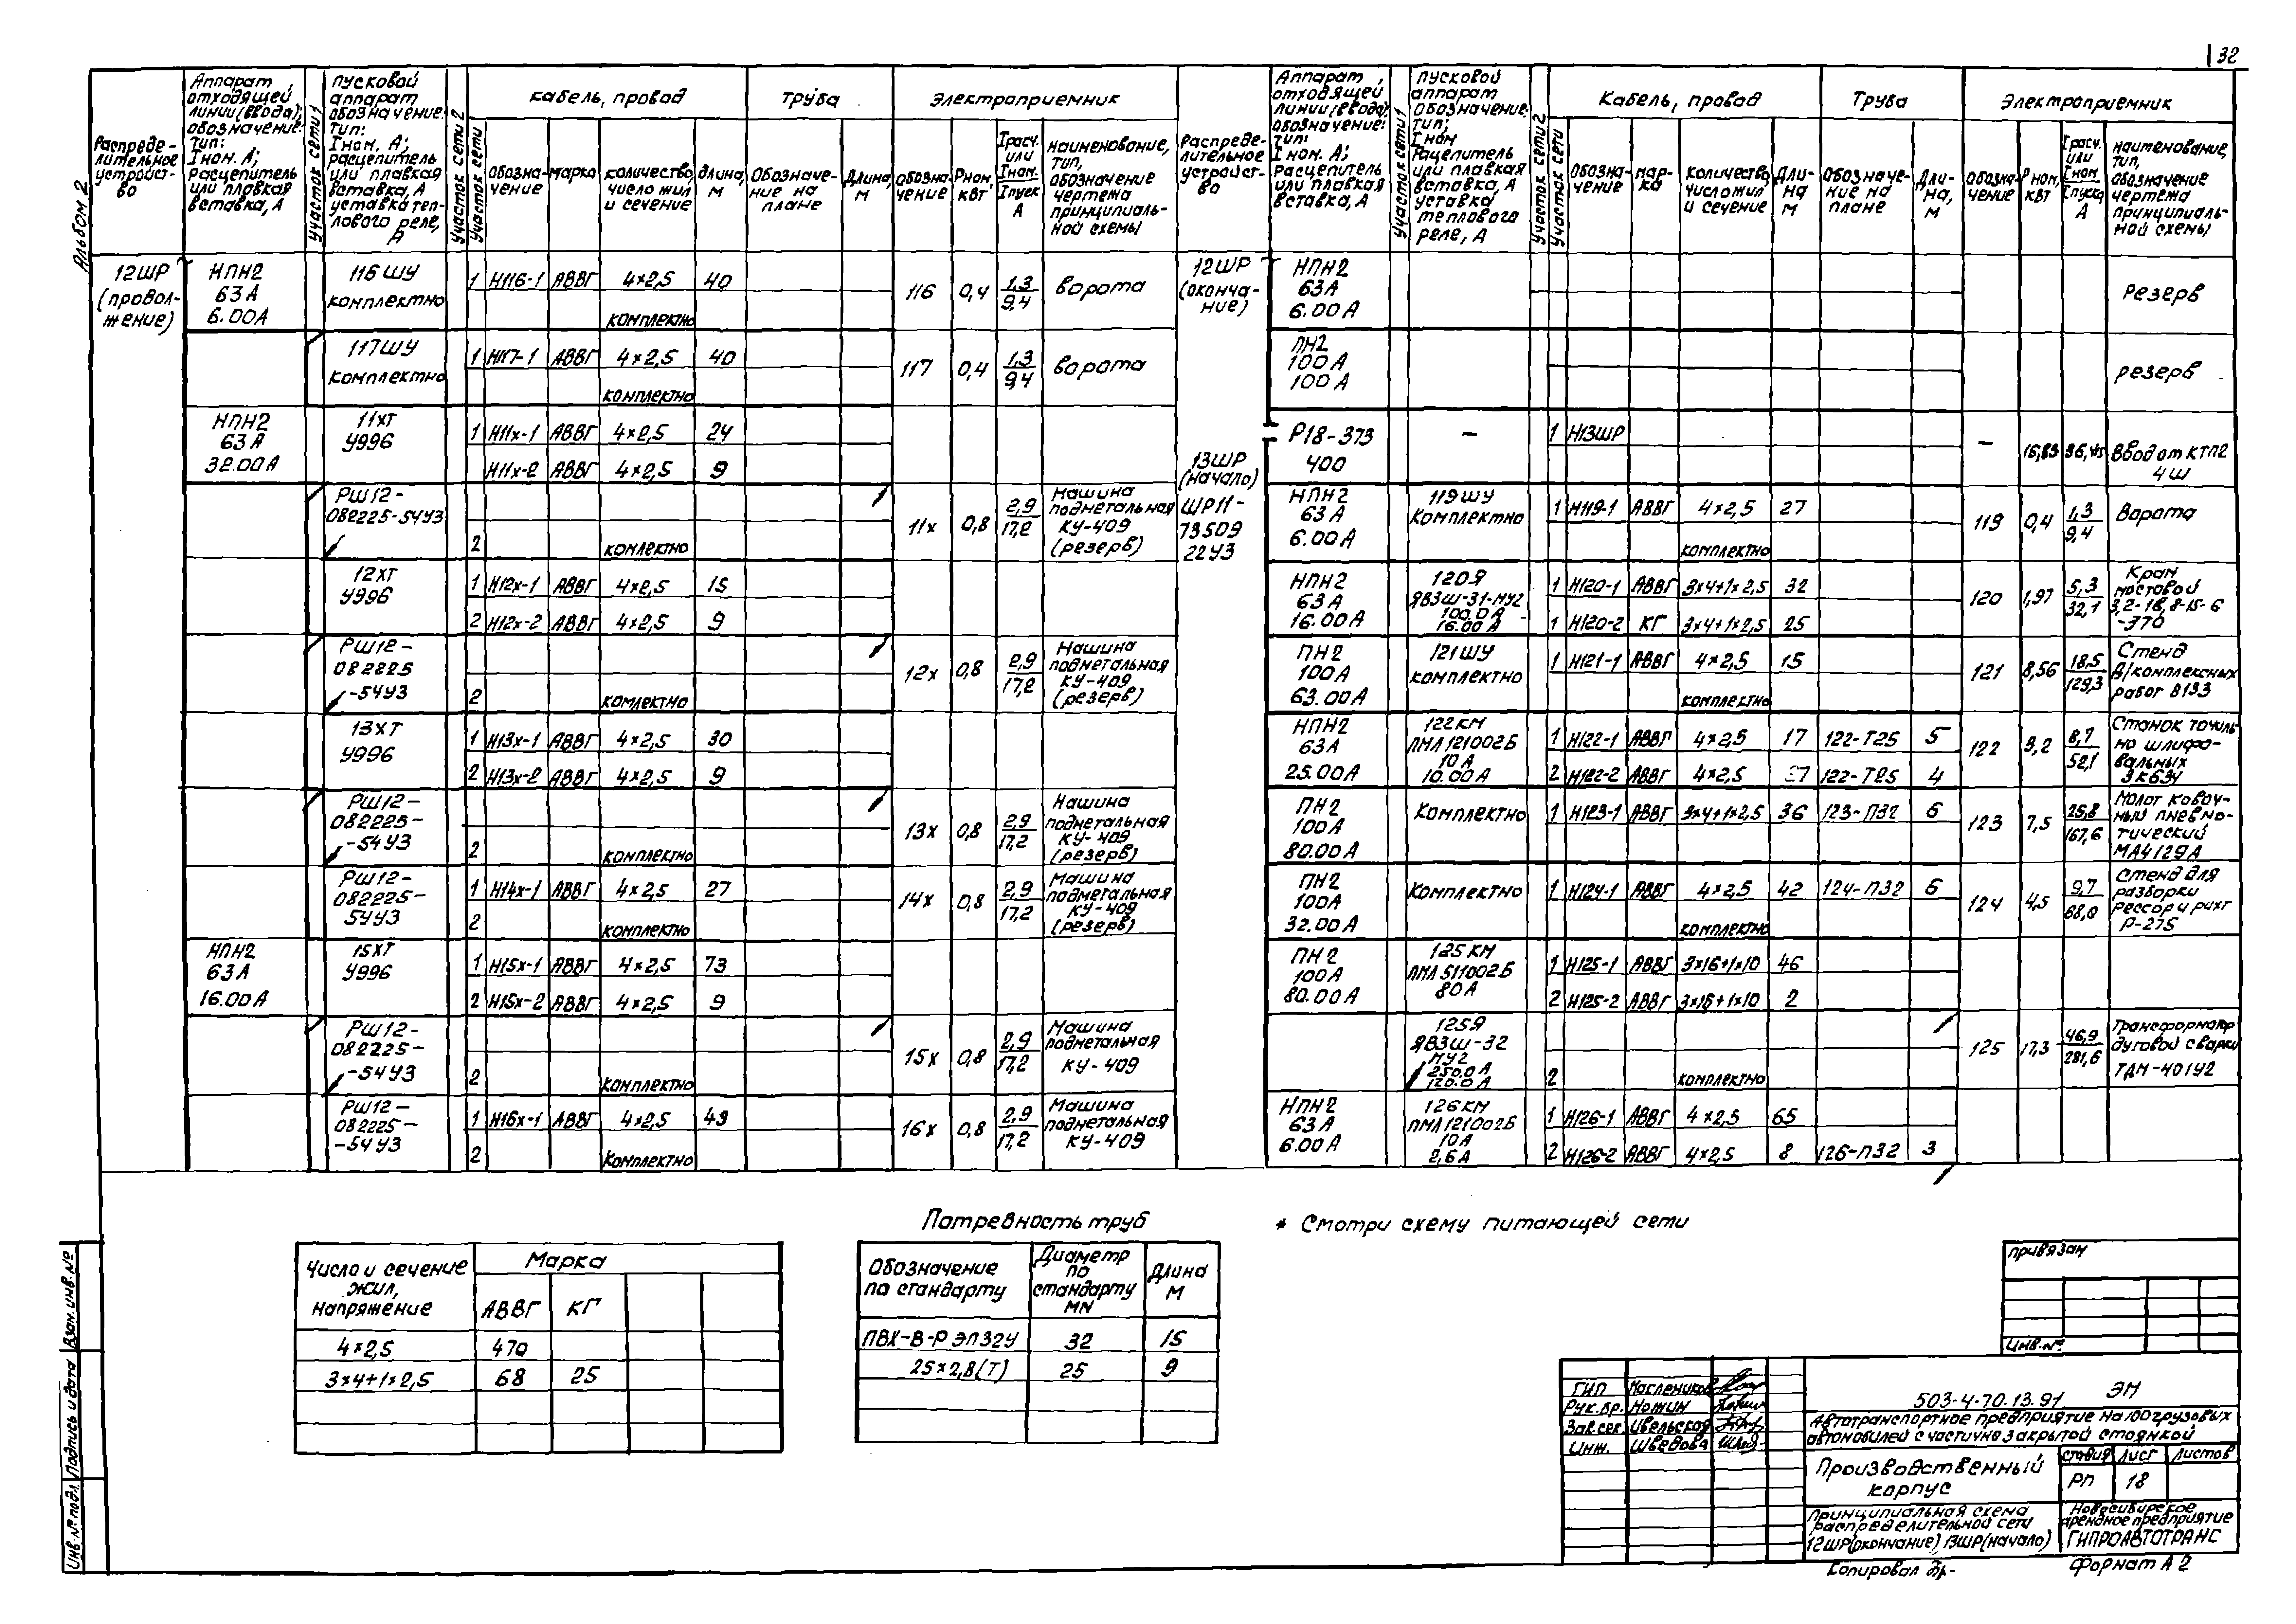 32
Альбом 2
Распреде-
лительное
устройст-
во
Аппарат
отходящей
линии (ввода);
обозначение:
тип:
Iном. А;
Расцепитель
или плавкая
вставка, А
Участок сети 1
Пусковой
аппарат
обозначение
тип:
Iном, А;
расцепитель
или плавкая
вставка, А
уставка теп-
лового реле,
А
Участок сети 2
Участок сети
Кабель, провод
Обозна-
чение
марка
количество,
число жил
и сечение
длина,
м
Труба
Обозначе-
ние на
плане
Длина,
м
Электроприемник
Обозна-
чение
Рном,
кВт
Iрасч.
или
Iном.
Iпуск
А
Наименование,
тип,
обозначение
чертежа
принципиаль-
ной схемы
Распреде-
лительное
устройст-
во
Аппарат
отходящей
линии (ввода)
обозначение:
тип:
Iном. А;
Расцепитель
или плавкая
вставка, А
Участок сети 1
Пусковой
аппарат
обозначение
тип;
Iном
Рацепитель
или плавкая
вставка, А
уставка
теплового
реле, А
Участок сети 2
Участок сети
Кабель, провод
Обозна-
чение
мар-
ка
Количество,
число жил
и сечение
Дли-
на
м
Труба
Обозначе-
ние на
плане
Дли-
на,
м
Электроприемник
Обозна-
чение
Рном,
кВт
Iрасч.
или
Iном
Iпуска
А
Наименование,
тип,
обозначение
чертежа
принципиаль-
ной схемы
12ШР
(продол-
жение)
НПН2
63А
6.00А
116ШУ
комплектно
1 Н116-1 АВВГ 4×2,5 40
комплектно
116 0,4 1,3
9,4
ворота
117ШУ
комплектно
1 Н117-1 АВВГ 4×2,5 40
комплектно
117 0,4 1,3
9,4
ворота
НПН2
63А
32.00А
11хТ
У996
1 Н11х-1 АВВГ 4×2,5 24
Н11х-2 АВВГ 4×2,5 9
РШ12-
082225-54У3
2
комлектно
11х 0,8 2,9
17,2
Машина
подметальная
КУ-409
(резерв)
12хТ
У996
1 Н12х-1 АВВГ 4×2,5 15
2 Н12х-2 АВВГ 4×2,5 9
РШ12-
082225
-54У3
2
комлектно
12х 0,8 2,9
17,2
Машина
подметальная
КУ-409
(резерв)
13хТ
У996
1 Н13х-1 АВВГ 4×2,5 30
2 Н13х-2 АВВГ 4×2,5 9
РШ12-
082225-
-54У3
2
комплектно
13х 0,8 2,9
17,2
Машина
подметальная
КУ-409
(резерв)
РШ12-
082225-
54У3
1 Н14х-1 АВВГ 4×2,5 27
2
комплектно
14х 0,8 2,9
17,2
Машина
подметальная
КУ-409
(резерв)
НПН2
63А
16.00А
15хТ
У996
1 Н15х-1 АВВГ 4×2,5 73
2 Н15х-2 АВВГ 4×2,5 9
РШ12-
082225-
-54У3
2
комплектно
15х 0,8 2,9
17,2
Машина
подметальная
КУ-409
РШ12-
082225-
-54У3
1 Н16х-1 АВВГ 4×2,5 49
2
Комплектно
16х 0,8 2,9
17,2
Машина
подметальная
КУ-409
12ШР
(оконча-
ние)
НПН2
63А
6.00А
Резерв
ПН2
100А
100А
резерв
13ШР
(начало)
ШР11-
73509
22У3
Р18-373
400
—
1 Н13ШР
— 16,83 36,45 Ввод от КТП2
4Ш
НПН2
63А
6.00А
119ШУ
Комплектно
1 Н119-1 АВВГ 4×2,5 27
комплектно
119 0,4 1,3
9,4
Ворота
НПН2
63А
16.00А
120Я
ЯВЗШ-31-МУ2
100.0А
16.00А
1 Н120-1 АВВГ 3×4+1×2,5 32
1 Н120-2 КГ 3×4+1×2,5 25
120 1,97 5,3
32,1
Кран
мостовой
3,2-16,8-15-6
-370
ПН2
100А
63.00А
121ШУ
комплектно
1 Н121-1 АВВГ 4×2,5 15
комплектно
121 8,56 18,5
129,3
Стенд
д/комплексных
работ В193
НПН2
63А
25.00А
122КМ
ПМЛ121002Б
10А
10.00А
1 Н122-1 АВВГ 4×2,5 17 122-Т25 5
2 Н122-2 АВВГ 4×2,5 122-Т25 4
122 3,2 8,7
52,1
Станок точиль
но шлифо-
вальных
3К634
ПН2
100А
80.00А
Комплектно
1 Н123-1 АВВГ 3×4+1×2,5 36 123-П32 6
123 7,5 25,8
167,6
Молот ковоч-
ный пневмо-
тический
МА4129А
ПН2
100А
32.00А
Комплектно
1 Н124-1 АВВГ 4×2,5 42 124-П32 6
комплектно
124 4,5 9,7
68,0
Стенд для
разборки
рессор и рихт
Р-275
ПН2
100А
80.00А
125КМ
ПМЛ511002Б
80А
1 Н125-1 АВВГ 3×16+1×10 46
2 Н125-2 АВВГ 3×16+1×10 2
125Я
ЯВЗШ-32
МУ2
250.0А
120.0А
2
комплектно
125 17,3 46,9
281,6
Трансформатор
дуговой сварки
ТДМ-401У2
НПН2
63А
6.00А
126КМ
ПМЛ121002Б
10А
2,6А
1 Н126-1 АВВГ 4×2,5 65
2 Н126-2 АВВГ 4×2,5 8 126-П32 3
Число и сечение
жил,
напряжение
Марка
АВВГ КГ
4×2,5 470
3×4+1×2,5 68 25
Потребность труб
Обозначение
по стандарту
Диаметр
по
стандарту
мм
Длина
м
ПВХ-В-Р ЭП32У 32 15
25×2,8(Т) 25 9
* Смотри схему питающей сети
Привязан
Инв.№
ГИП Маслеников
Рук.бр. Ножин
Зав.сек. Ивельская
Инж. Шведова
503-4-70.13.91 ЭМ
Автотранспортное предприятие на 100 грузовых
автомобилей с частично закрытой стоянкой
Производственный
корпус
Стадия Лист Листов
РП 18
Принципиальная схема
распределительной сети
12ШР(окончание), 13ШР(начало)
Новосибирское
арендное предприятие
ГИПРОАВТОТРАНС
Копировал
Формат А2
Инв.№ подл.
Подпись и дата
Взам.инв.№